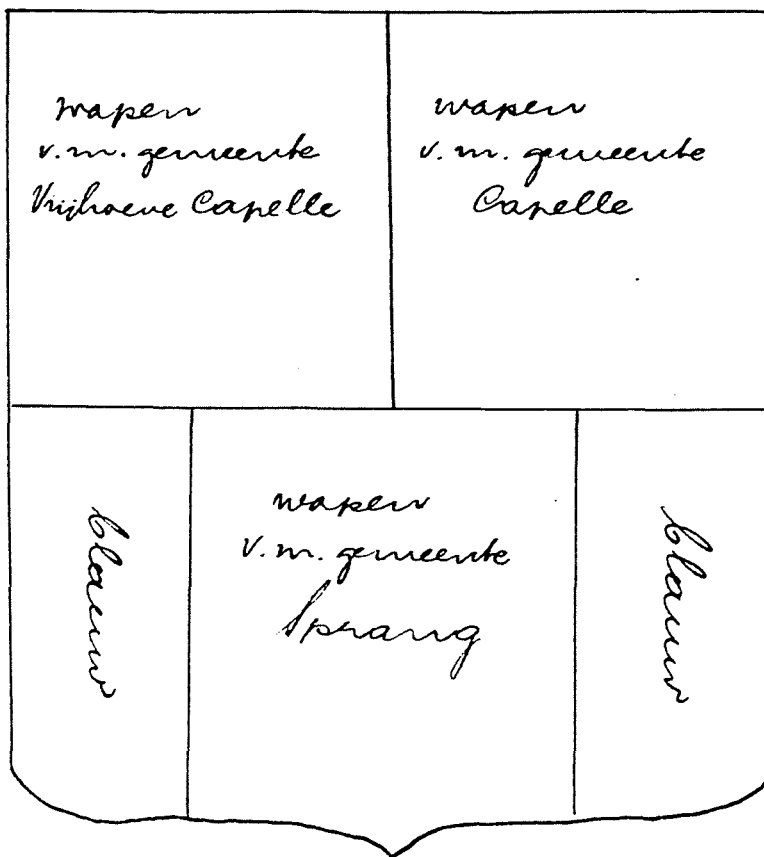 wapen
v.m. gemeente
Vrijhoeve Capelle
wapen
v.m. gemeente
Capelle
blauw
wapen
v.m. gemeente
Sprang
blauw